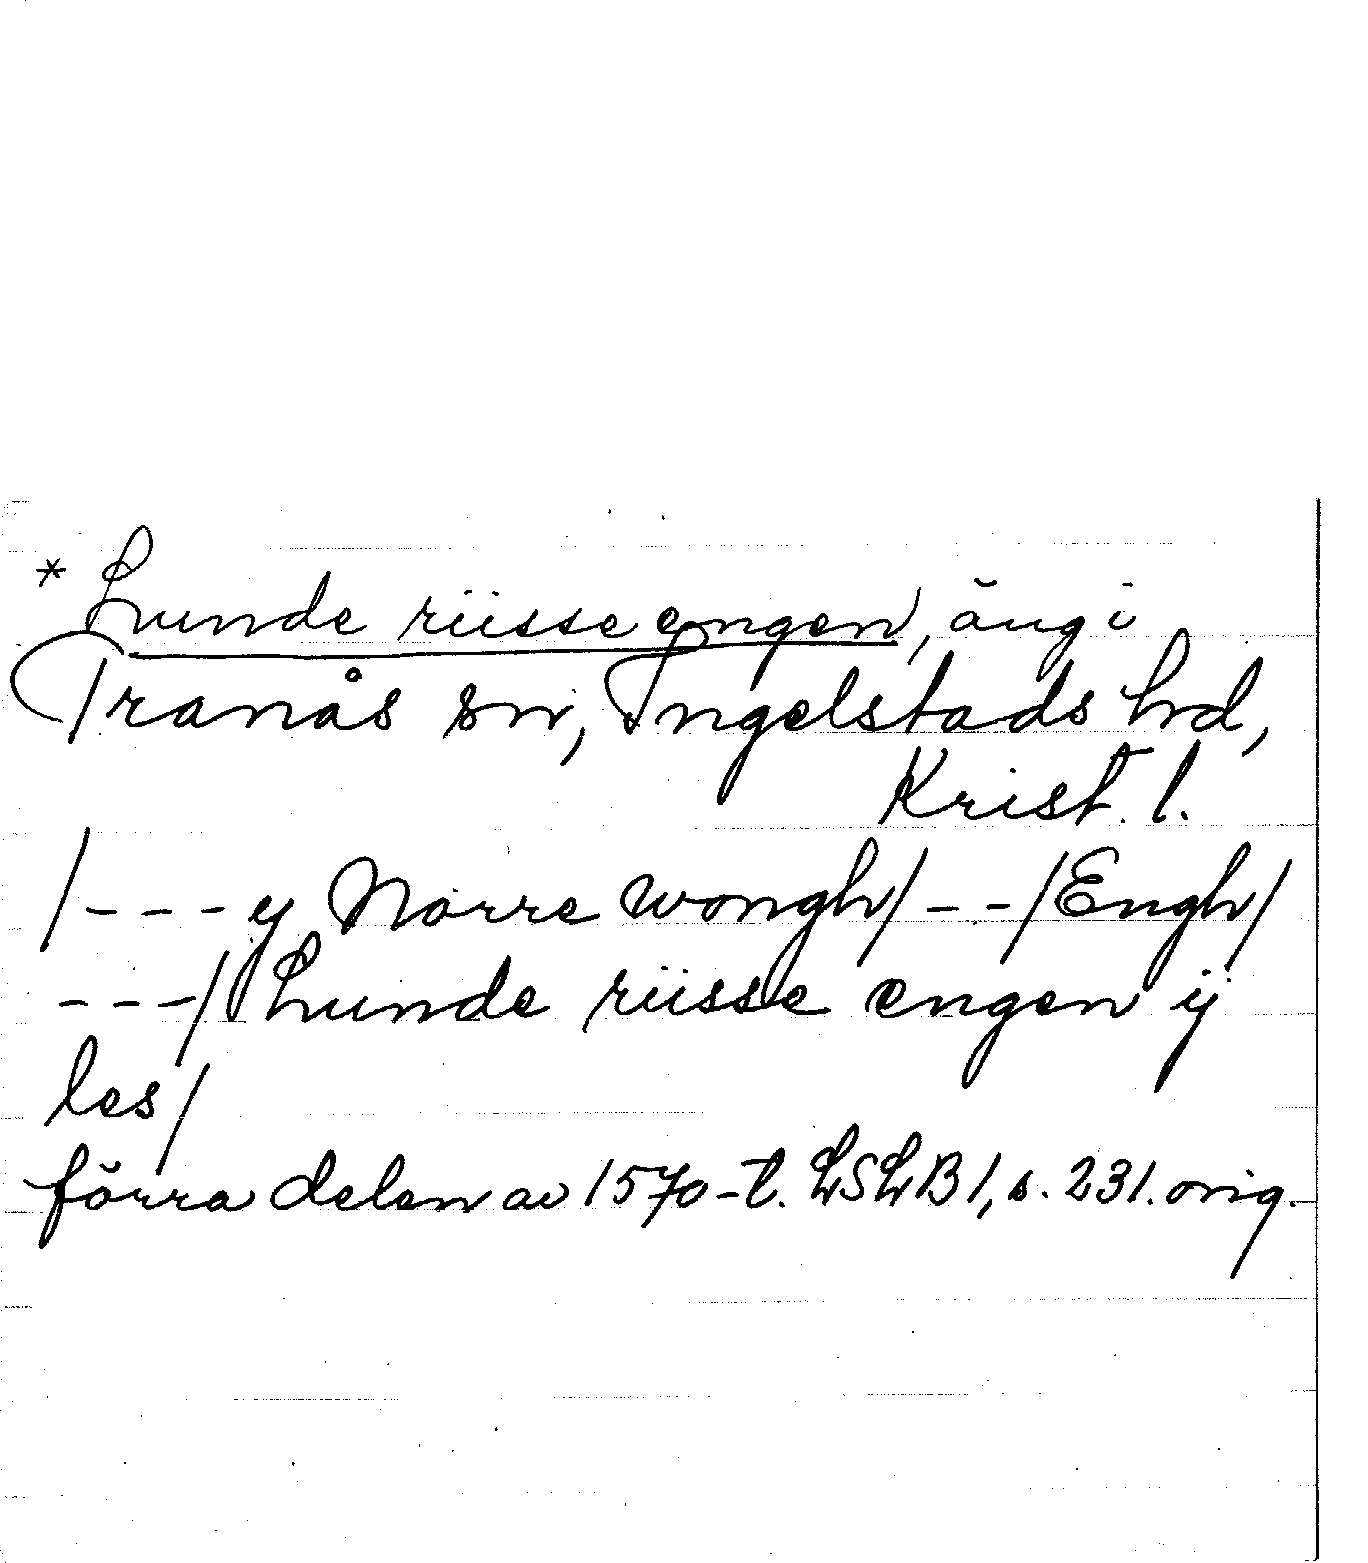 * Lunde riisse engen, äng i
Tranås sn, Ingelstads hd,
Krist. l.
/--- y Norre wongh/ -- /Engh/
---/ Lunde riisse engen ij
les/
förra delen av 1570-t. LSLB 1, s. 231. orig.